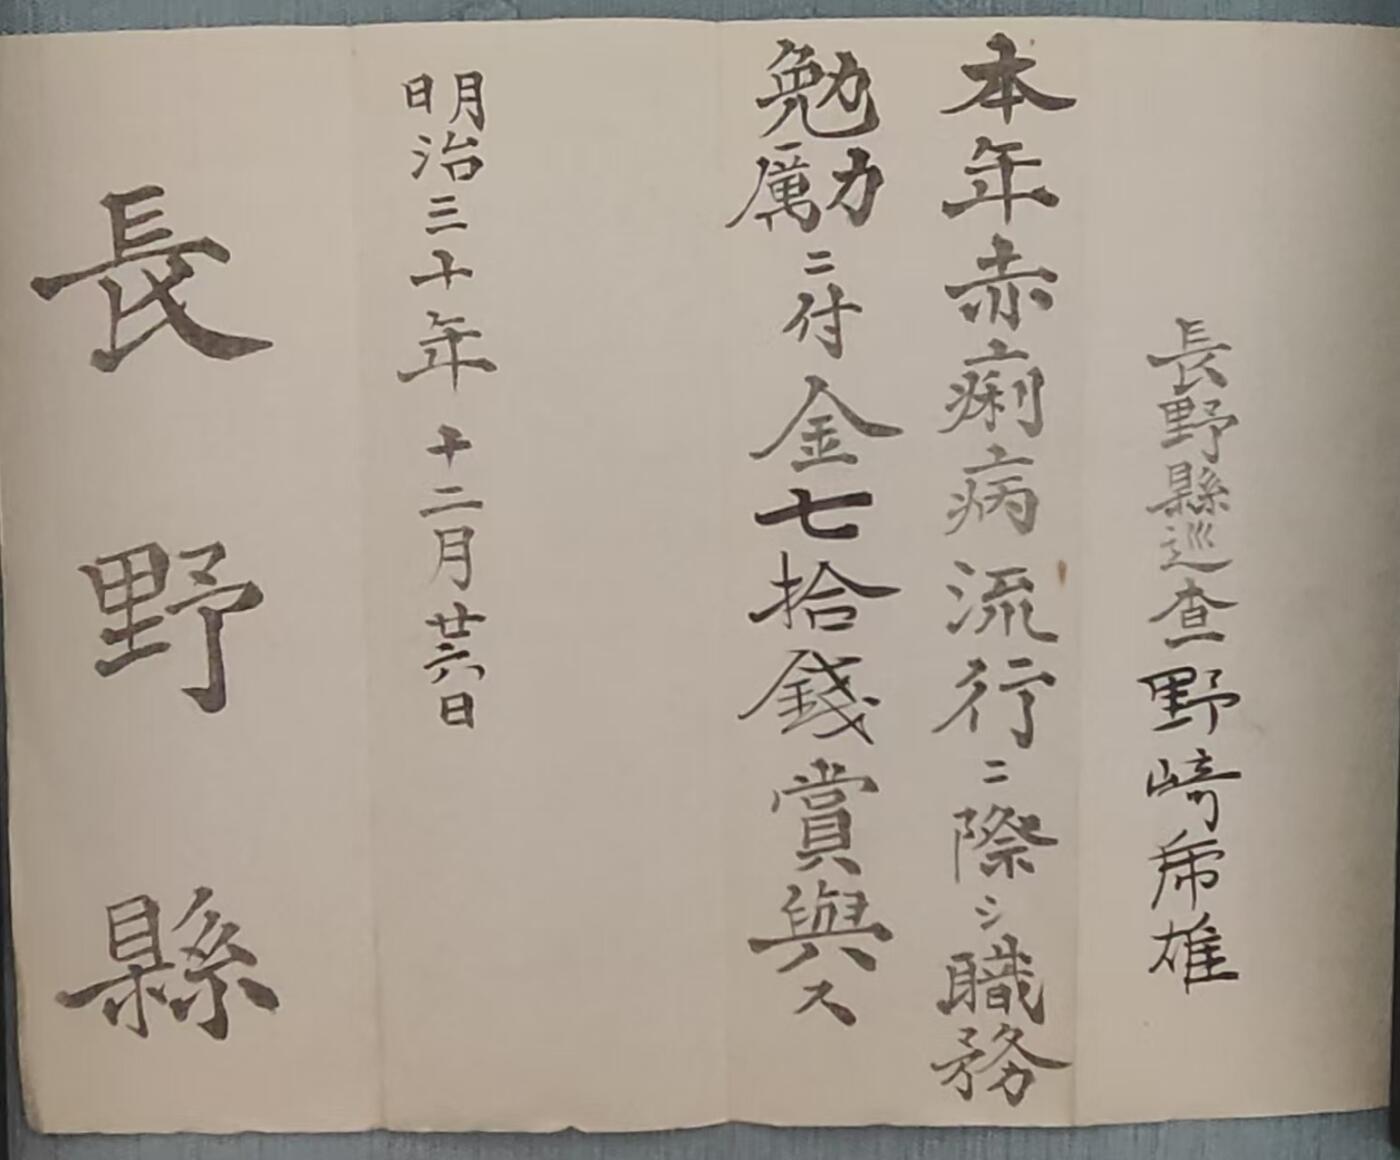 長野縣巡査野崎希雄
本年赤痢病流行ニ際シ職務
勉厲力ニ付金七拾錢賞與ス
明治三十年十二月廿六日
長野縣